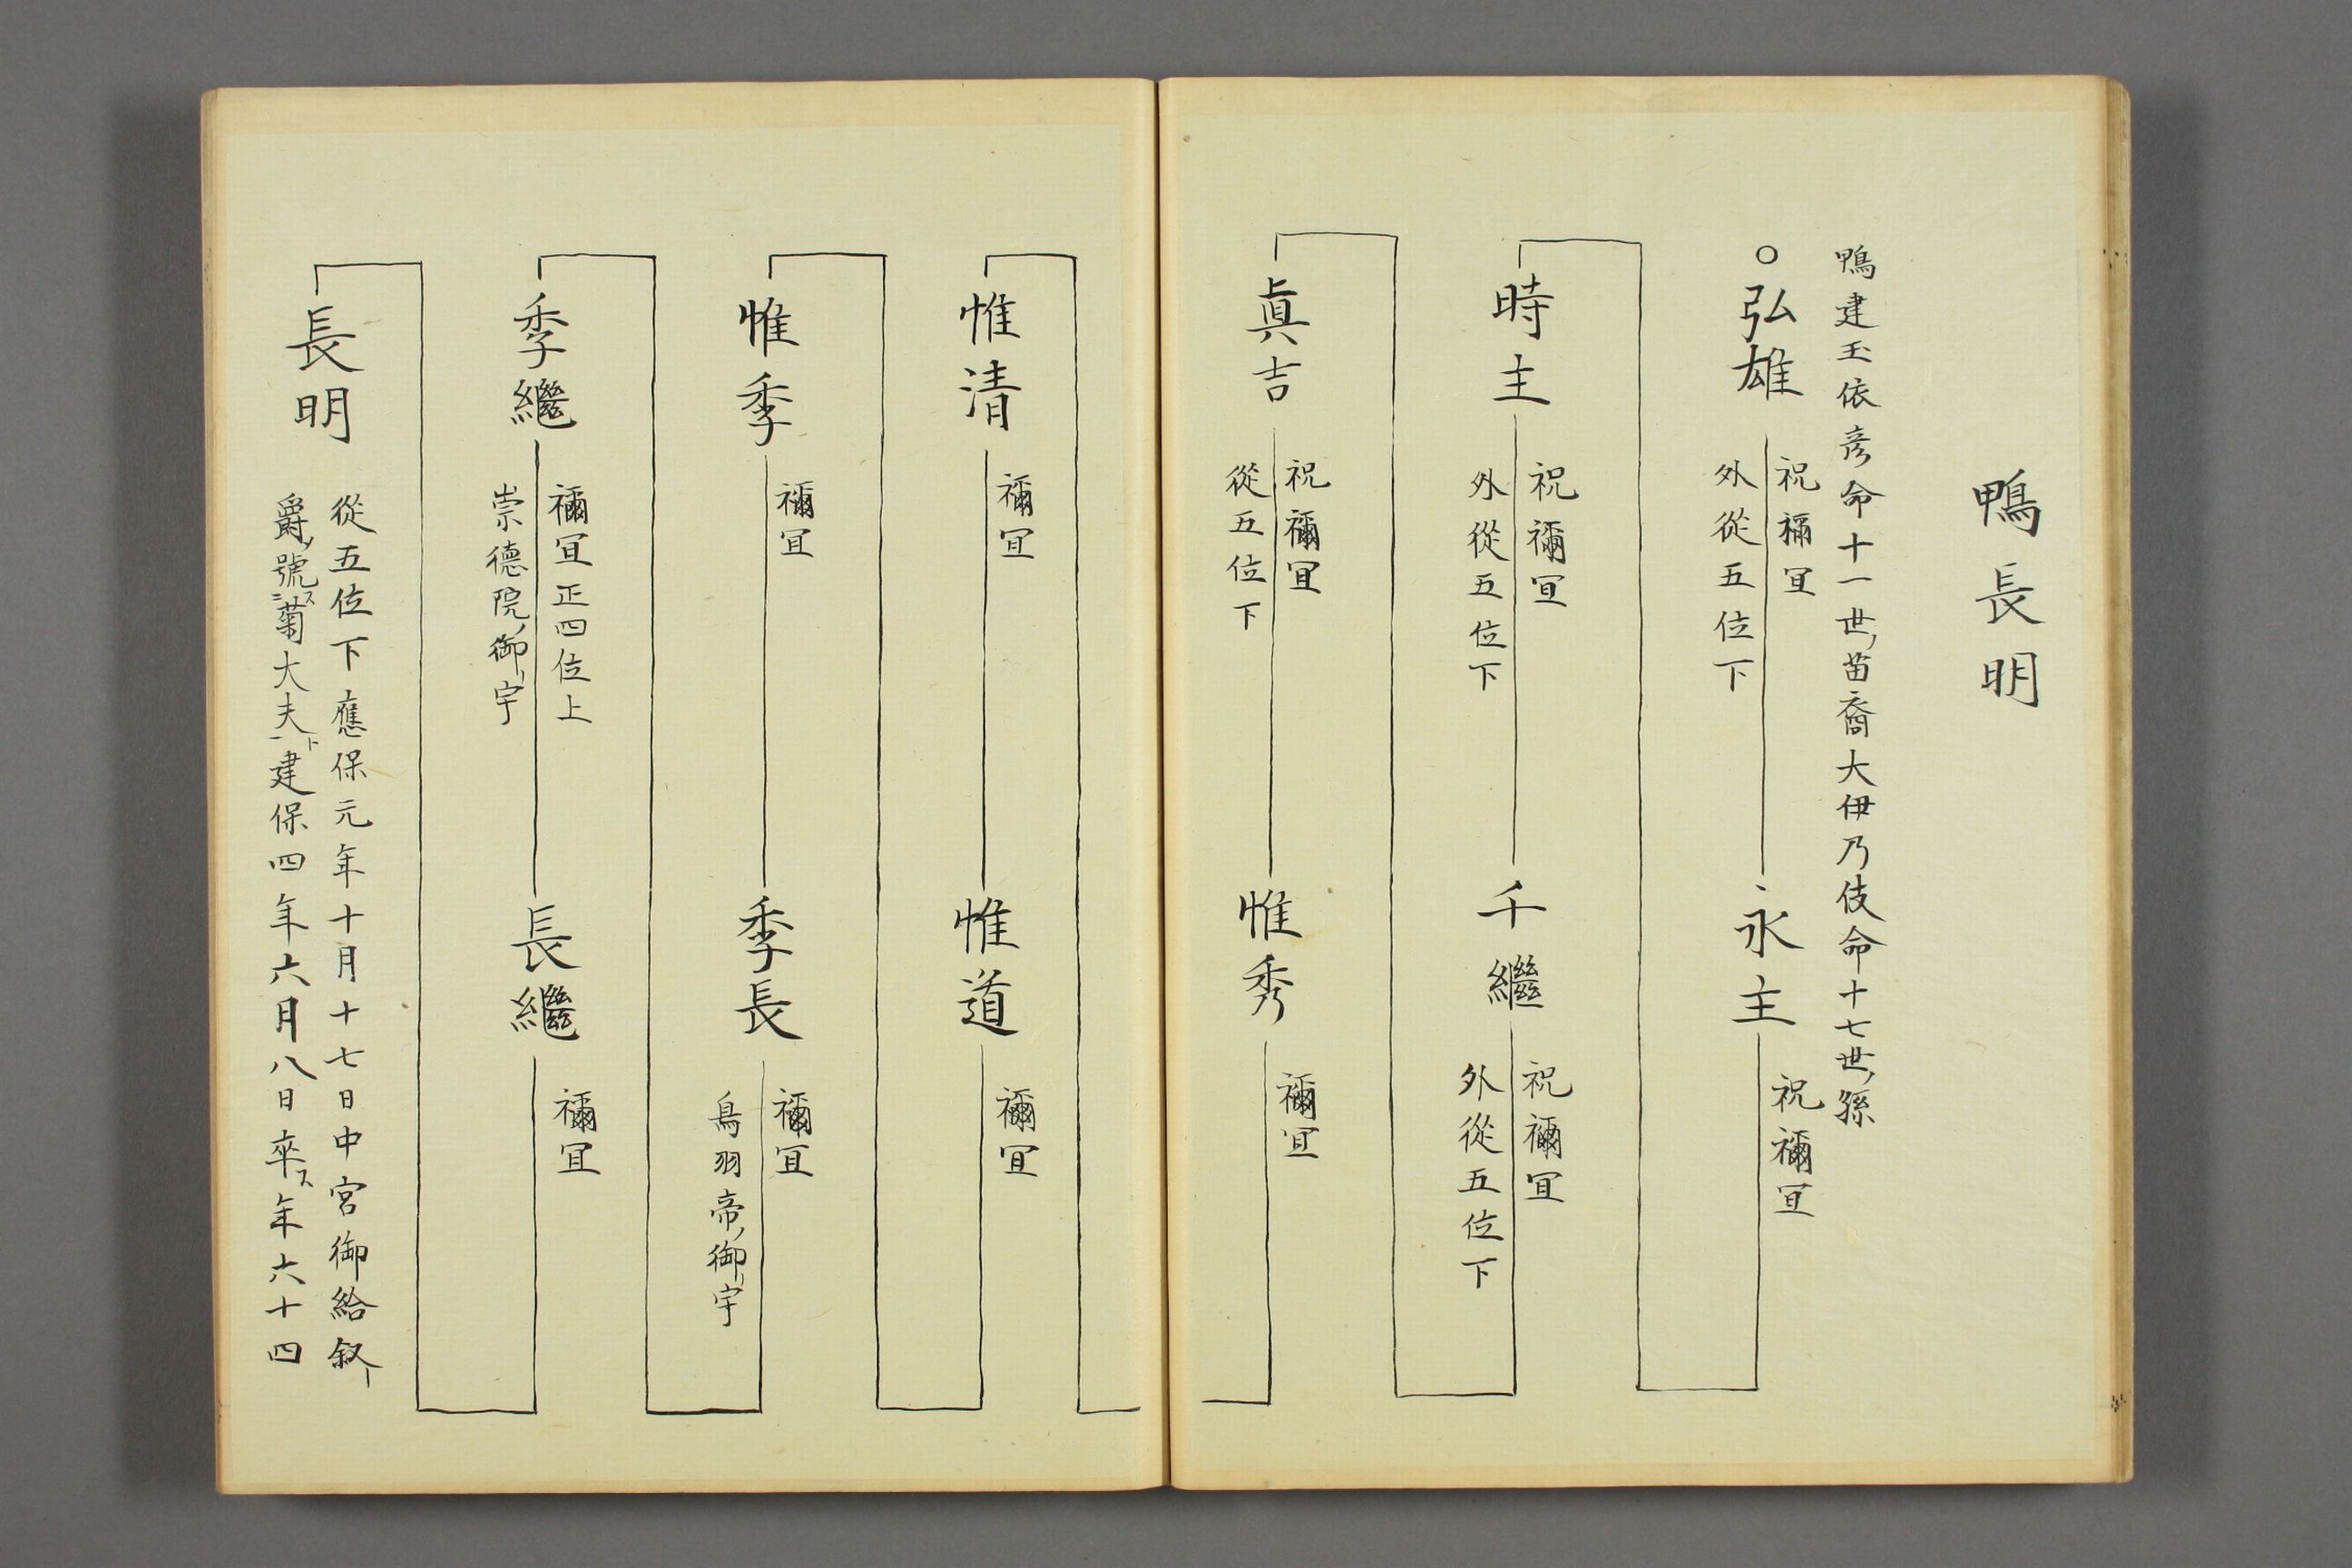 鴨長明
鴨建玉依彦命十一世ノ苗裔大伊乃伎命十七世ノ孫
○弘雄
祝禰冝
外從五位下
永主
祝禰冝
時主
祝禰冝
外從五位下
千繼
祝禰冝
外從五位下
眞吉
祝禰冝
從五位下
惟秀
禰冝
惟清
禰冝
惟道
禰冝
惟季
禰冝
季長
禰冝
鳥羽帝ノ御宇
季繼
禰冝正四位上
崇德院ノ御宇
長繼
禰冝
長明
從五位下應保元年十月十七日中宮御給叙一
爵ノ號ス二菊大夫ト一建保四年六月八日卒ス年六十四